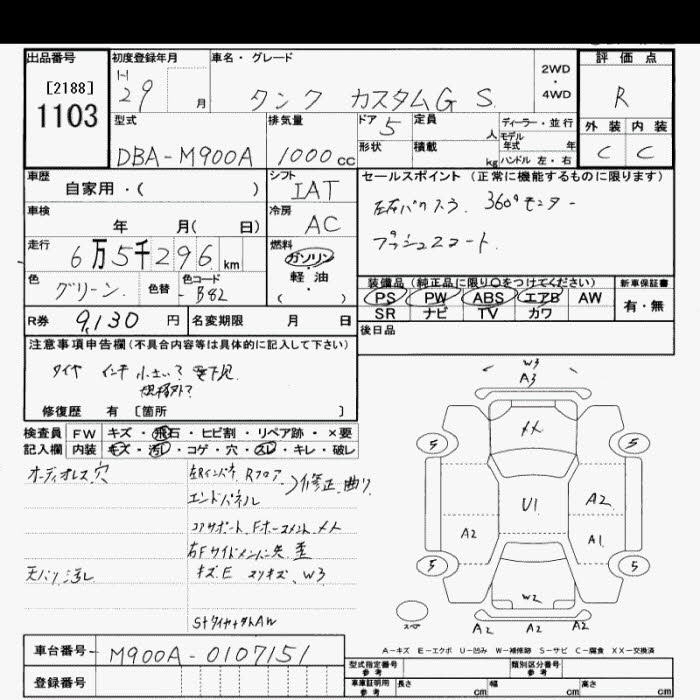 出品番号
初度登録年月
車名・グレード
2WD
・
4WD
評価点
[2188]
1103
H
29 月
タンク カスタムG S
R
型式
DBA-M900A
排気量
1000 cc
ドア 5
定員 人
ディーラー・並行
モデル
年式 年
外装
内装
形状
積載 kg
ハンドル 左・右
C
C
車歴
自家用・( )
シフト
IAT
セールスポイント (正常に機能するものに限ります)
車検
年 月( 日)
冷房
AC
360°モニター
走行
6万5千296 km
燃料
ガソリン
・
軽油
( )
プッシュスタート
色
グリーン
色替
色コード
B82
装備品 (純正品に限り○をつけてください)
新車保証書
PS PW ABS エアB AW
SR ナビ TV カワ
有・無
R券 9,130 円
名変期限 月 日
後日品
注意事項申告欄 (不具合内容等は具体的に記入して下さい)
タイヤ インチ 小さい?
規格外?
修復歴 有 [箇所 ]
検査員
記入欄
FW キズ・飛石・ヒビ割・リペア跡・×要
内装 キズ・汚レ・コゲ・穴・スレ・キレ・破レ
オーディオレス 穴
左Rインパネ Rフロア
エンドパネル
修正、曲り
コアサポート
右Fサイドメンバー先 歪
天バリ 汚レ
キズE スリキズ W3
W3
A3
XX
U1
A2
A1
A2
W2
A2 A2 A2
5
5
5
5
スペア
A-キズ E-エクボ U-凹み W-補修跡 S-サビ C-腐食 XX-交換済
車台番号 M900A-0107151
登録番号
型式指定番号
参考
類別区分番号
参考
車庫証明用
参考
長さ cm
幅 cm
高さ cm